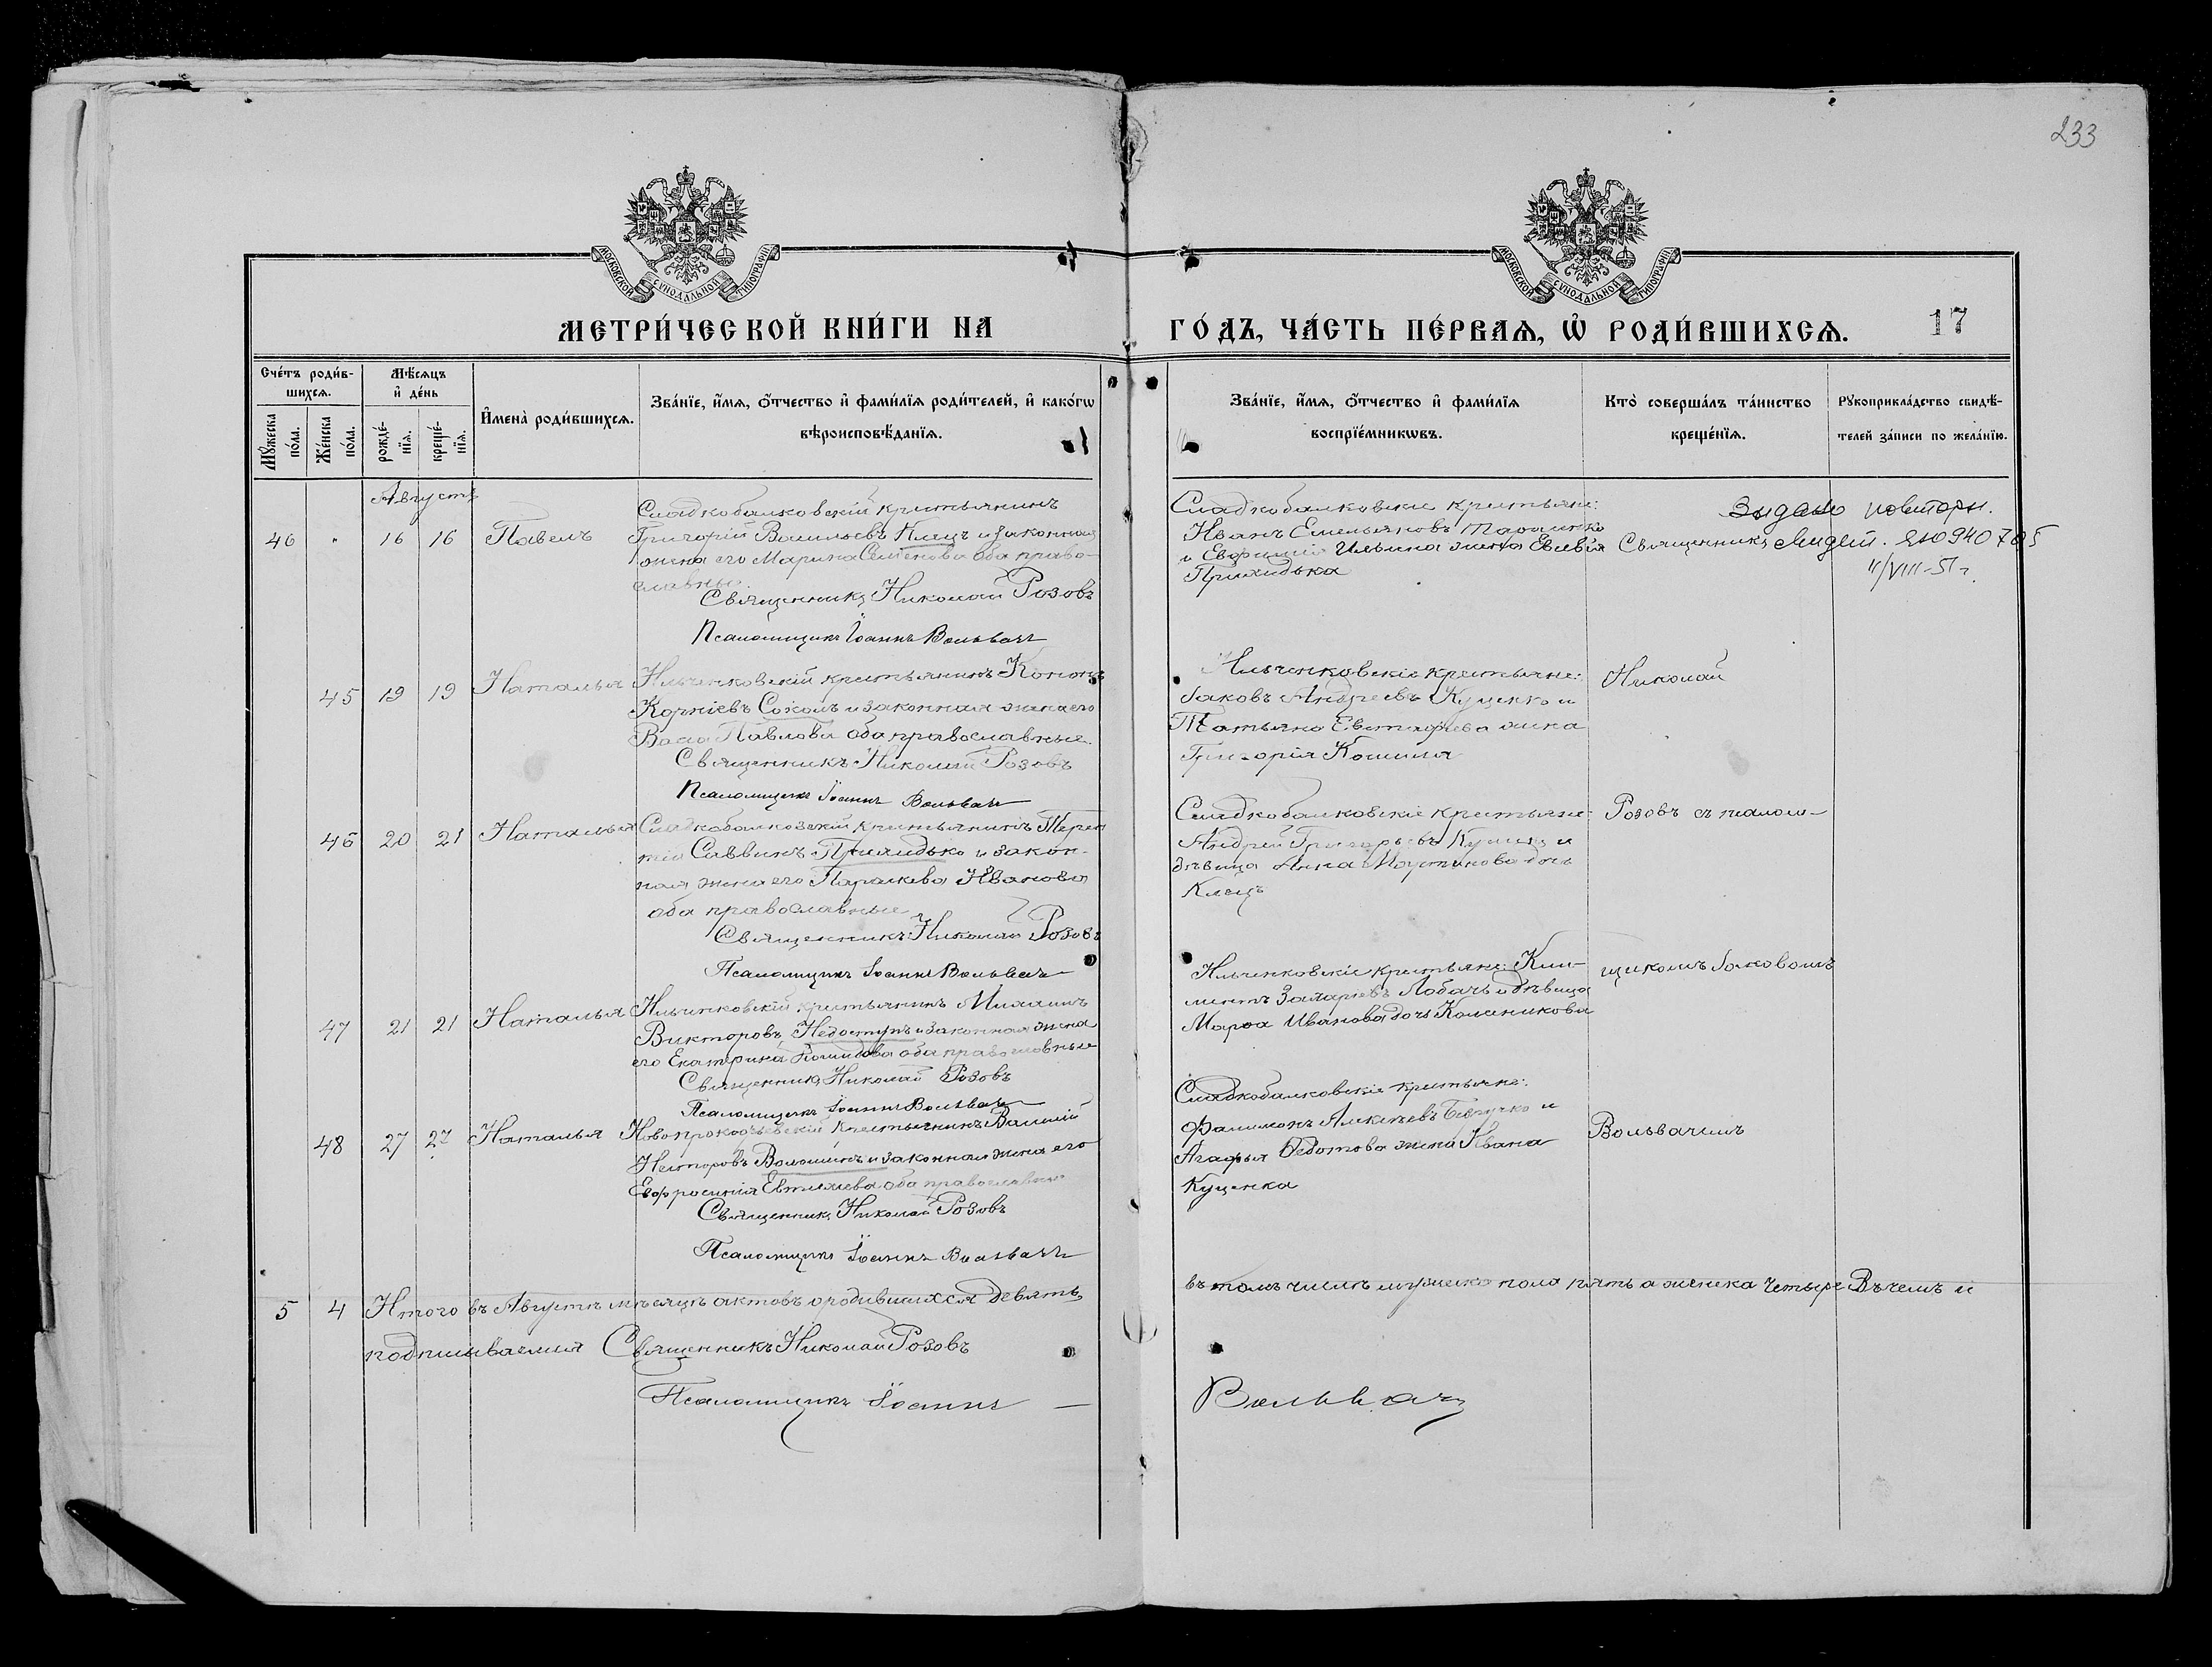 233
МОСКОВСКОЙ СУНОДАЛЬНОЙ ТИПОГРАФІИ
МОСКОВСКОЙ СУНОДАЛЬНОЙ ТИПОГРАФІИ
МЕТРИ́ЧЕСКОЙ КНИ́ГИ НА
ГО́ДЪ, ЧА́СТЬ ПЕ́РВАѦ, Ѽ РОДИ́ВШИХСѦ.
17
Сче́тъ роди́в-
шихсѧ.
Мꙋ́жеска по́ла.
Же́нска по́ла.
Мѣ́сѧцъ
и҆ де́нь
рожде́-
нїѧ.
креще́-
нїѧ.
И҆мена̀ роди́вшихсѧ.
Зва́нїе, и҆́мѧ, ѻ҆́тчество и҆ фами́лїѧ роди́телей, и҆ како́гѡ
вѣроисповѣ́данїѧ.
Зва́нїе, и҆́мѧ, ѻ҆́тчество и҆ фами́лїѧ
воспрїе́мникѡвъ.
Кто̀ соверша́лъ та́инство
креще́нїѧ.
Рꙋкоприкла́дство свидѣ́-
телей за́писи по жела́нїю.
Августъ
46 " 16 16 Павелъ
Сладкобалковскій крестьянинъ
Григорій Васильевъ Клецъ и законная
жена его Марина Семенова оба право-
славные.
Священникъ Николай Розовъ
Псаломщикъ Іоаннъ Вольвачъ
Сладкобалковскіе крестьяне:
Иванъ Емельяновъ
и Евфимія Ильина жена Евсевія
Приходька
Священникъ
Выдано повторн.
210940705
11/VIII-51 г.
45 19 19 Наталья
Ильченковскій крестьянинъ Кононъ
Корніевъ Соколъ и законная жена его
Васса Павлова оба православные.
Священникъ Николай Розовъ
Псаломщикъ Іоаннъ Вольвачъ
Ильченковскіе крестьяне:
Іаковъ Андреевъ Куценко и
Татьяна Евстафіева жена
Григорія
Николай
46 20 21 Наталья
Сладкобалковскій крестьянинъ Терен
тій Саввинъ Приходько и закон-
ная жена его Параскева Иванова
оба православные
Священникъ Николай Розовъ
Псаломщикъ Іоаннъ Вольвачъ
Сладкобалковскіе крестьяне:
Андрей Григорьевъ и
дѣвица Анна дочь
Клецъ
Розовъ съ псалом-
47 21 21 Наталья
Ильченковскій крестьянинъ Михаилъ
Викторовъ Недоступъ и законная жена
его Екатерина оба православные
Священникъ Николай Розовъ
Псаломщикъ Іоаннъ Вольвачъ
Ильченковскіе крестьяне: Кли-
ментъ Захаріевъ Лобачъ и дѣвица
Марѳа Иванова дочь Колесникова
щикомъ Іаковомъ
48 27 27 Наталья
Новопрокофьевскій крестьянинъ Василій
Несторовъ Волошинъ и законная жена его
Евфросинія Евтихіева оба православные
Священникъ Николай Розовъ
Псаломщикъ Іоаннъ Вольвачъ
Сладкобалковскіе крестьяне:
Филимонъ Алексѣевъ и
Агафья Ѳедотова жена Ивана
Куценка
Вольвачемъ
5 4 Итого въ Августѣ мѣсяцѣ актовъ о родившихся девять,
въ томъ числѣ мужеска пола пять а женска четыре Въ чемъ и
подписываемся Священникъ Николай Розовъ
Псаломщикъ Іоаннъ —
Вольвачъ